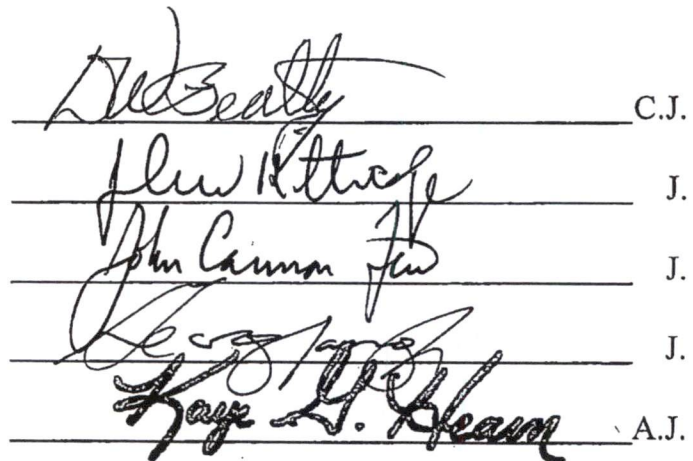 DW Beatty C.J.
John Kittredge J.
John Cannon Few J.
J.
Kaye G. Hearn A.J.